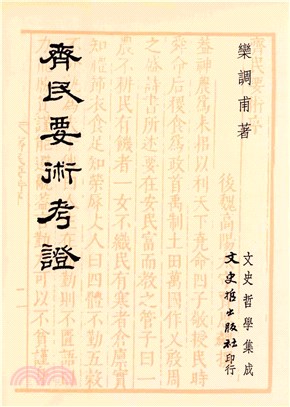 欒調甫著
齊民要術考證
文史哲學集成
文史哲出版社印行
齊民要術序
後魏高陽
蓋神農為耒耜以利天下堯命四子敬授民時
舜命后稷食為政首禹制土田萬國作乂殷周
之盛詩書所述要在安民富而教之管子曰一
農不耕民有饑者一女不織民有寒者倉廩實
知禮節衣食足知榮辱丈人曰四體不勤五穀
勤則不匱語
可以不貧謹